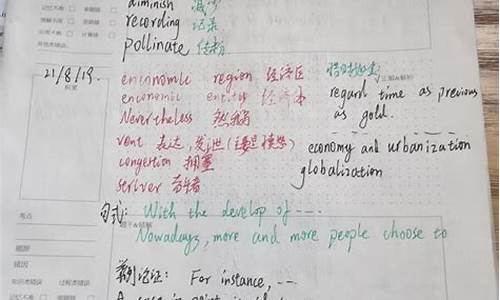 diminish 减少
recording 记录
pollinate 传粉
21/8/19.
economic region 经济区
economic entity 经济体
Nevertheless 然而
vent 表达,发泄(主要是愤怒)
congestion 拥塞
striver 奋斗者
惜时如金:
regard time as previous
as gold.
economy and urbanization
globalization
句式: With the develop of ----
Nowadays, more and more people choose to
举例论证: For instance, --
考点
错题
错因
知识类错误 过程类错误